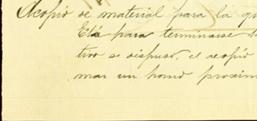 Acopió de material para la
Está para terminarse
tivo se dispuso, el acopió
mar un horno proxim